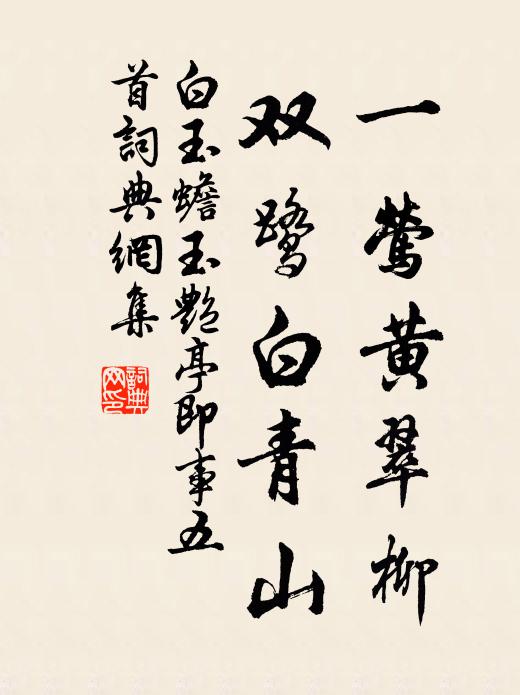 一莺黄翠柳
双鹭白青山
白玉蟾玉艷亭即事五
首詞典網集
詞典
网印